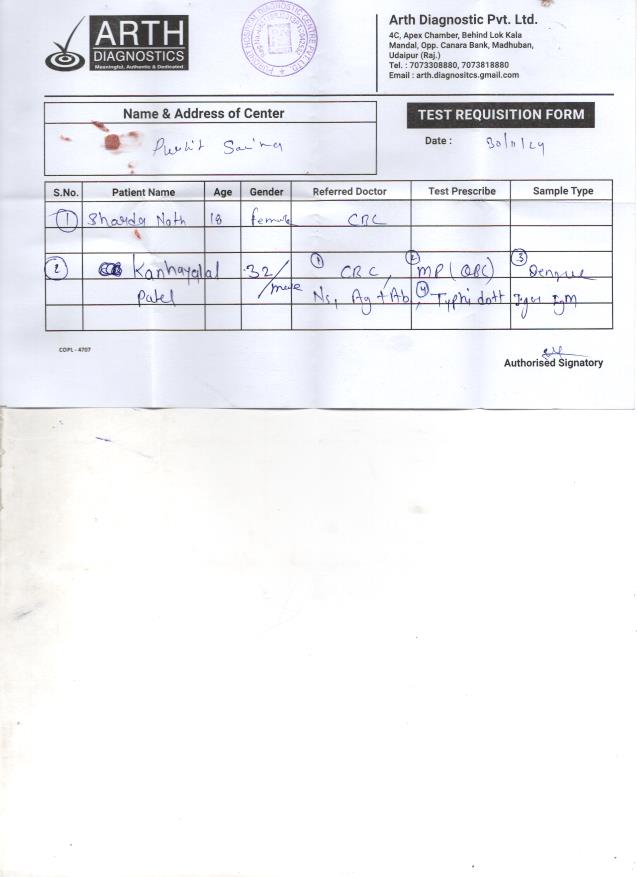 ARTH
DIAGNOSTICS
Meaningful, Authentic & Dedicated
Arth Diagnostic Pvt. Ltd.
4C, Apex Chamber, Behind Lok Kala
Mandal, Opp. Canara Bank, Madhuban,
Udaipur (Raj.)
Tel. : 7073308880, 7073818880
Email : arth.diagnositcs.gmail.com
Name & Address of Center
TEST REQUISITION FORM
Date : 30/11/24
S.No. Patient Name Age Gender Referred Doctor Test Prescribe Sample Type
1 Sharda Nath 18 female CBC
2 Kanhayalal 32/ 1 CBC, 2 MP (QBC) 3 Dengue
Patel male Ns, Ag + Ab, 4 Typhi dott IgG IgM
CDPL - 4707
Authorised Signatory